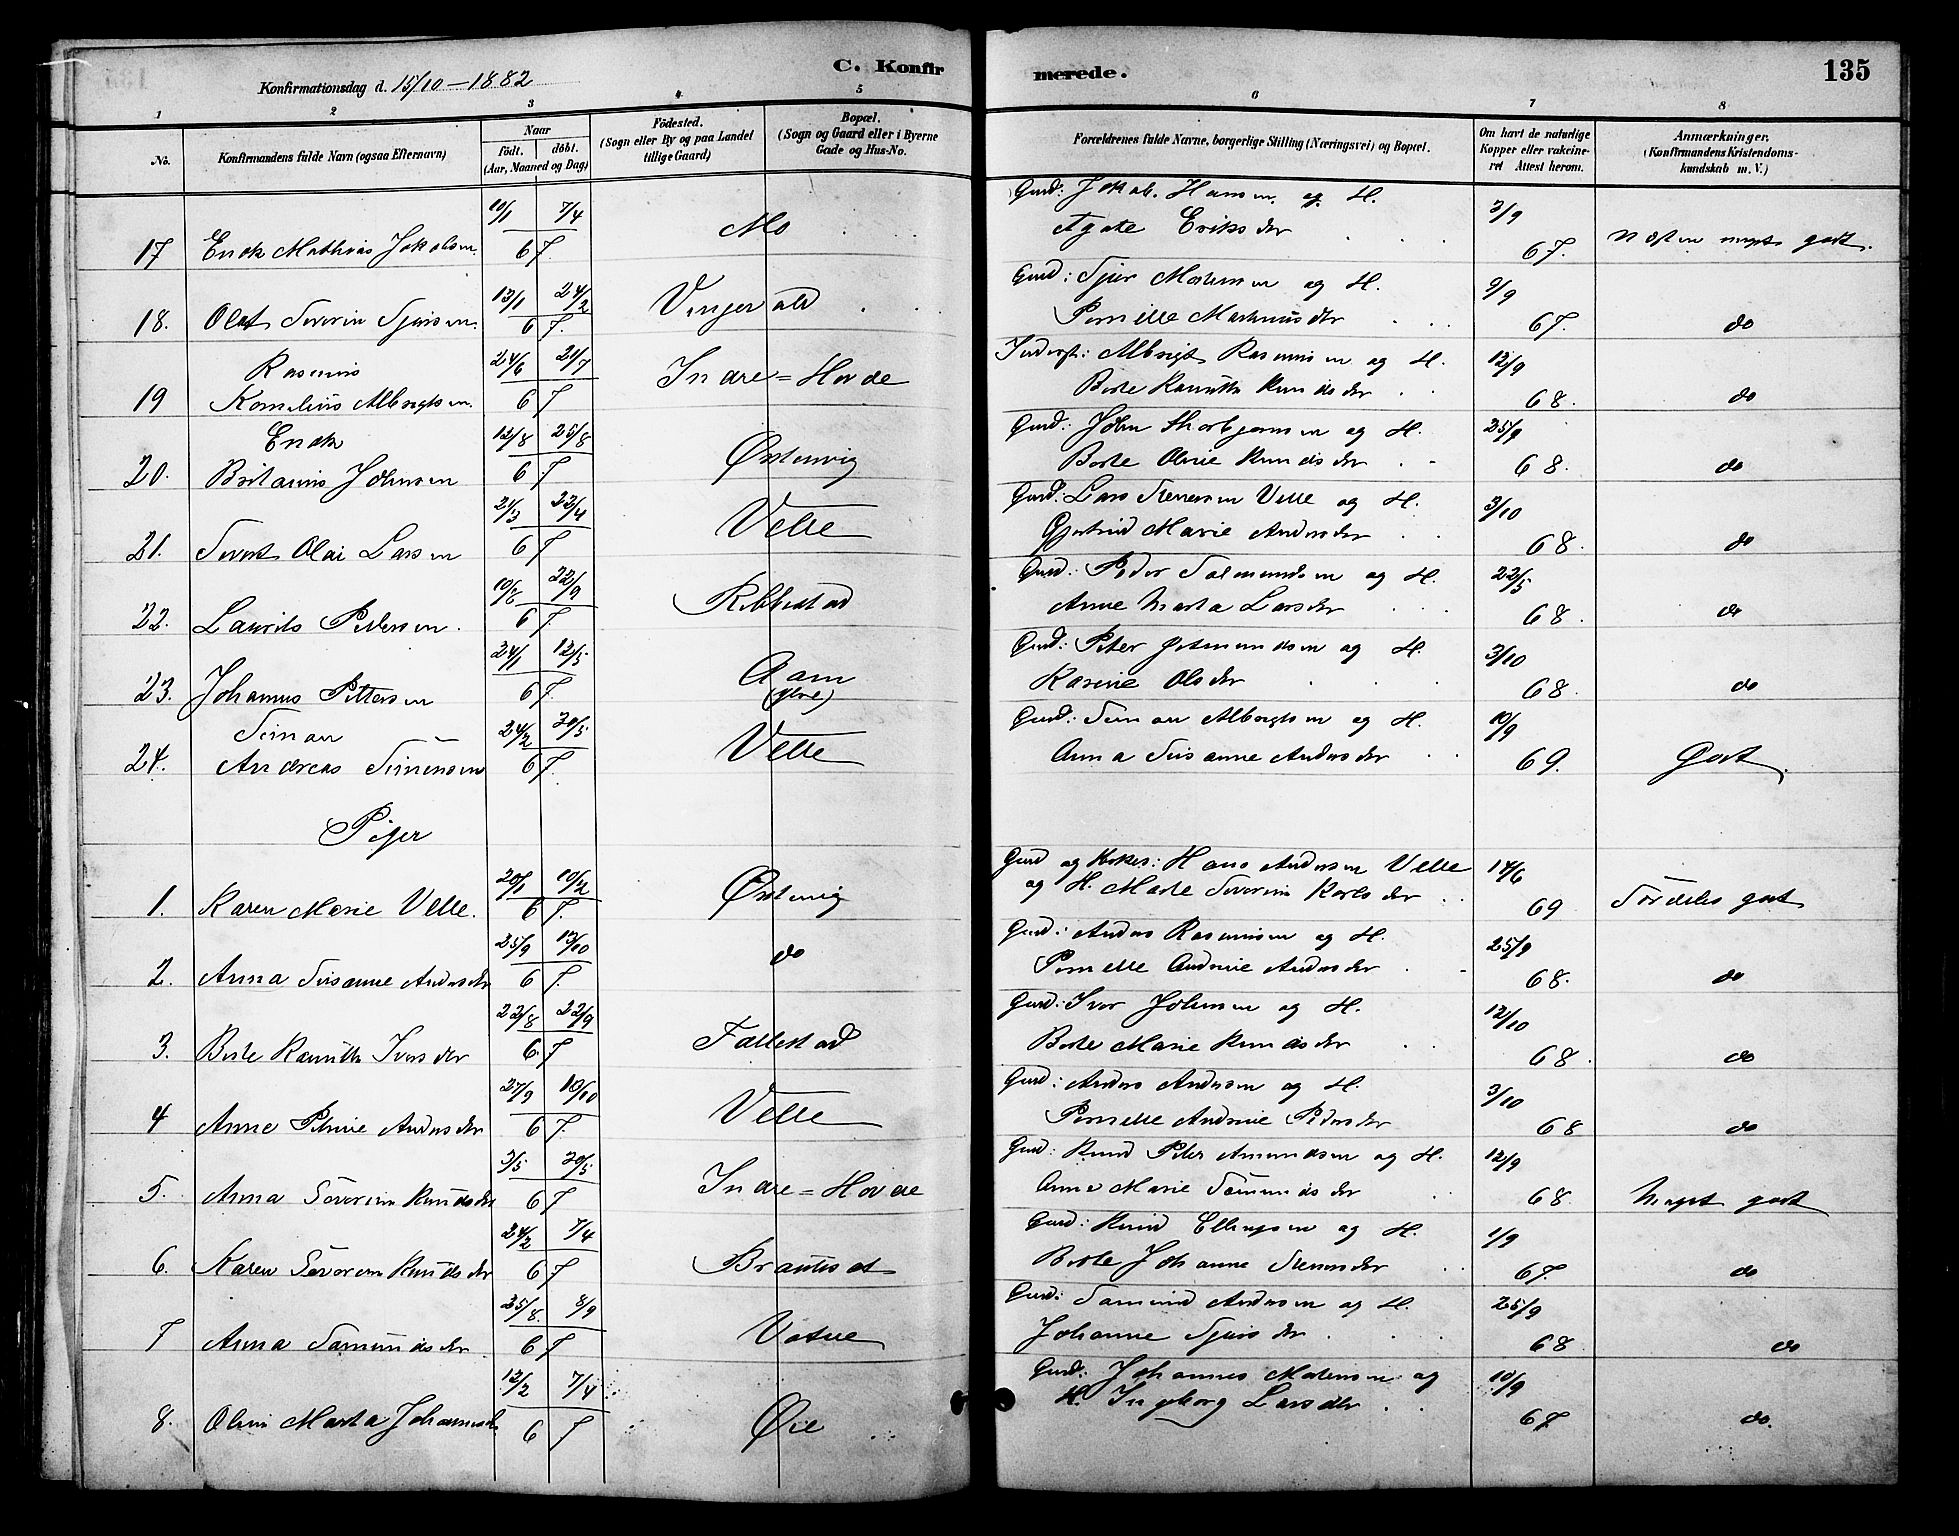 Konfirmationsdag d. 15/10 - 1882
C. Konfir merede. 135
1 2 3 4 5 6 7 8
No. Konfirmandens fulde Navn (ogsaa Efternavn) Naar födt. döbt. (Aar, Maaned og Dag) Födested. (Sogn eller By og paa Landet tillige Gaard) Bopæl. (Sogn og Gaard eller i Byerne Gade og Hus-No. Forældrenes fulde Navne, borgerlige Stilling (Næringsvei) og Bopæl. Om havt de naturlige Kopper eller vakcineret Attest herom. Anmærkninger, (Konfirmandens Kristendomskundskab m. V.)
10/1 7/4 Gmd: Jakob Hansen og H.
17 Enok Mathias Jakobsen 67. Mo Agate Eriksder 3/9 67. Næsten meget godt.
13/1 24/2 Gmd: Sjur Martensen og H.
18. Olaf Severin Sjursen 67. Vinjevold Pernille Markusdtr 9/9 67. do
Rasmus 24/6 21/7 Inderst: Albrigt Rasmusen og H.
19 Kornelius Albrigtsen 67 Indre=Hovde Berte Knutsder 12/9 68. do
Enok 12/8 25/8 Gmd: John Thorbjørnsen og H.
20. Britanus Johnsen 67 Østenvig Berte Oline Knudsder 25/9 68. do
21/3 22/4 Gmd: Lars Stenersen Velle og H.
21. Sivert Olai Larsen 67 Velle Gjertrud Marie Andersder 3/10 68. do
10/8 22/9 Gmd: Peder Salmundsen og H.
22. Laurits Pedersen 67 Ribbestad Anne Marta Larsder 22/5 68. do
24/1 12/5 Gmd: Peter Jetmundsen og H.
23. Johannes Pettersen 67. Aam Karine Olsder 3/10 68. do
Simon 24/2 30/5 Gmd: Simon Albregtsen og H.
24. Andreas Simonsen 67. Velle Anna Susanne Andersder 10/9 69. Godt
Piger
20/1 10/2 Gmd og Kirkes: Hans Andersen Velle
1. Karen Marie Velle. 67. Østenvig og H. Marte Severin Karlsder 14/6 69 Særdeles godt
25/9 13/10 Gmd: Anders Rasmusen og H.
2. Anna Susanne Andersder 67. do Pernelle Andrine Andersder 25/9 68. do
22/8 22/9 Gmd: Iver Johnsen og H.
3. Berte Iversder 67 Follestad Berte Marie Knudsder 12/10 68 do
27/9 10/10 Gmd: Anders Andersen og H.
4 Anne Petrine Andersder 67. Velle Pernelle Andrine Pedersder 3/10 68 do
3/5 30/5 Gmd: Knud Peter Amundsen og H.
5. Anna Severine Knudsder 67 Indre=Hovde Anne Marie Sæmundsder 12/9 68 Meget godt
24/2 7/4 Gmd: Knud Ellingsen og H.
6. Karen Severine Knudsder 67 Brautset Berte Johanne Stenersder 1/9 67. do
25/8. 8/9 Gmd: Sæmund Andersen og H.
7 Anna Sæmundsder 67 Vatne Johanne Sjursder 25/9 68 do
12/2 7/4 Gmd: Johannes Martensen og
8. Oline Marta Johannesd. 67 Øie H. Ingeborg Larsder 10/9 67 do.